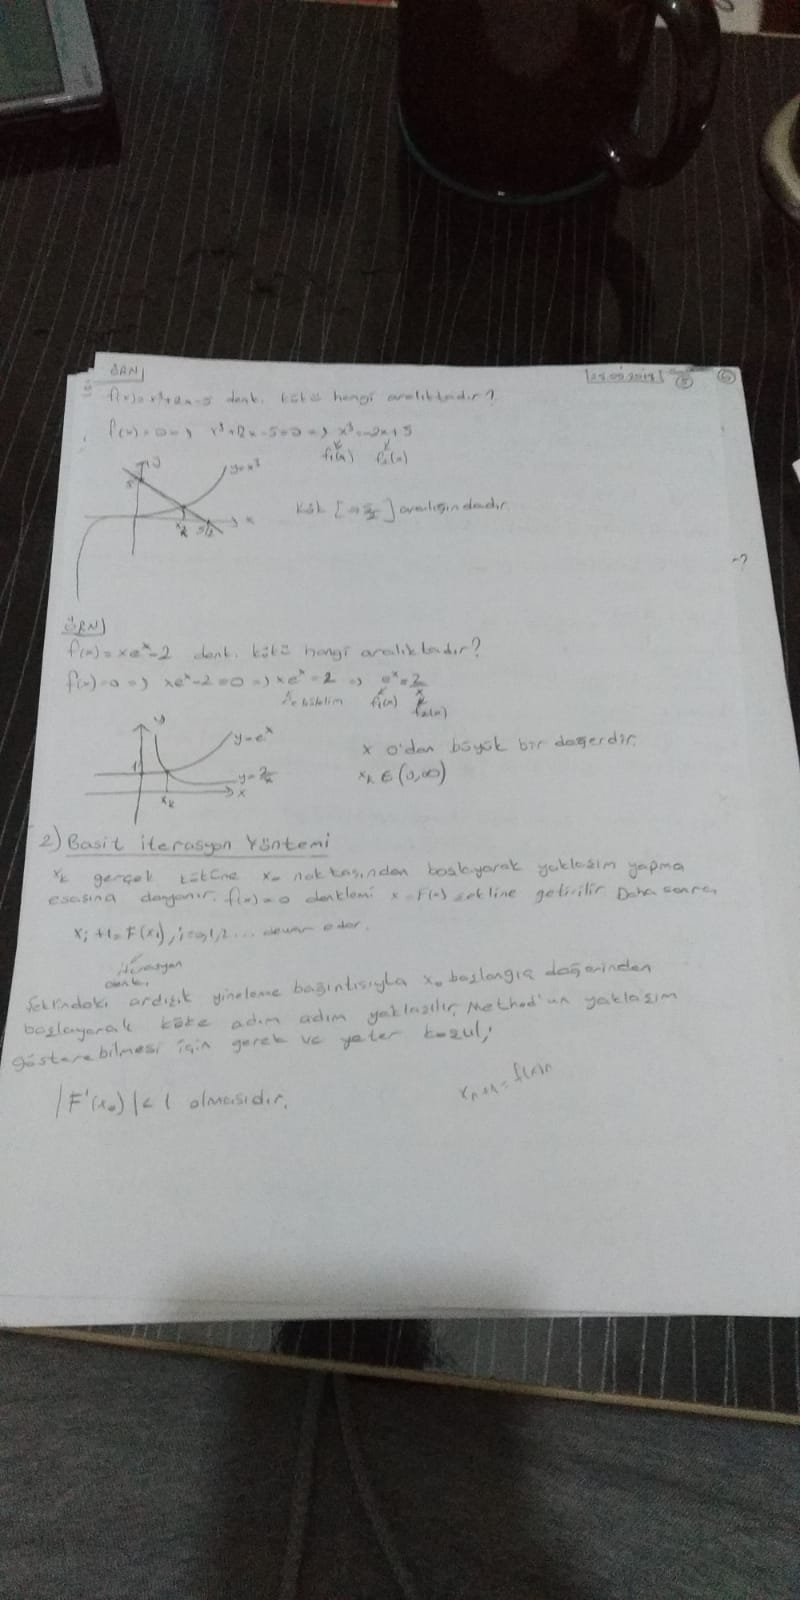 ÖRN
f(x)=x³+2x-5 denk. kökü hangi aralıktadır?
f(x)=0 => x³+2x-5=0 => x³=-2x+5
f₁(x) f₂(x)
y
5
y=x³
Kök [0, 5/2] aralığındadır.
xₖ 5/2 x
→?
ÖRN
f(x)=xeˣ-2 denk. kökü hangi aralıktadır?
f(x)=0 => xeˣ-2=0 => xeˣ=2 => eˣ=2/x
x'e bölelim f₁(x) f₂(x)
y
y=eˣ
x 0'dan büyük bir değerdir.
1
y=2/x
xₖ ∈ (0,∞)
xₖ x
2) Basit iterasyon Yöntemi
xₖ gerçek köküne x₀ noktasından başlayarak yaklaşım yapma
esasına dayanır. f(x)=0 denklemi x=F(x) şekline getirilir. Daha sonra,
xᵢ+1=F(xᵢ), i=0,1,2... devam eder.
iterasyon
denk.
Şeklindeki ardışık yineleme bağıntısıyla x₀ başlangıç değerinden
başlayarak köke adım adım yaklaşılır. Method'un yaklaşım
gösterebilmesi için gerek ve yeter koşul;
|F'(x₀)|<1 olmasıdır.
xₙ₊₁=f(x)ₙ